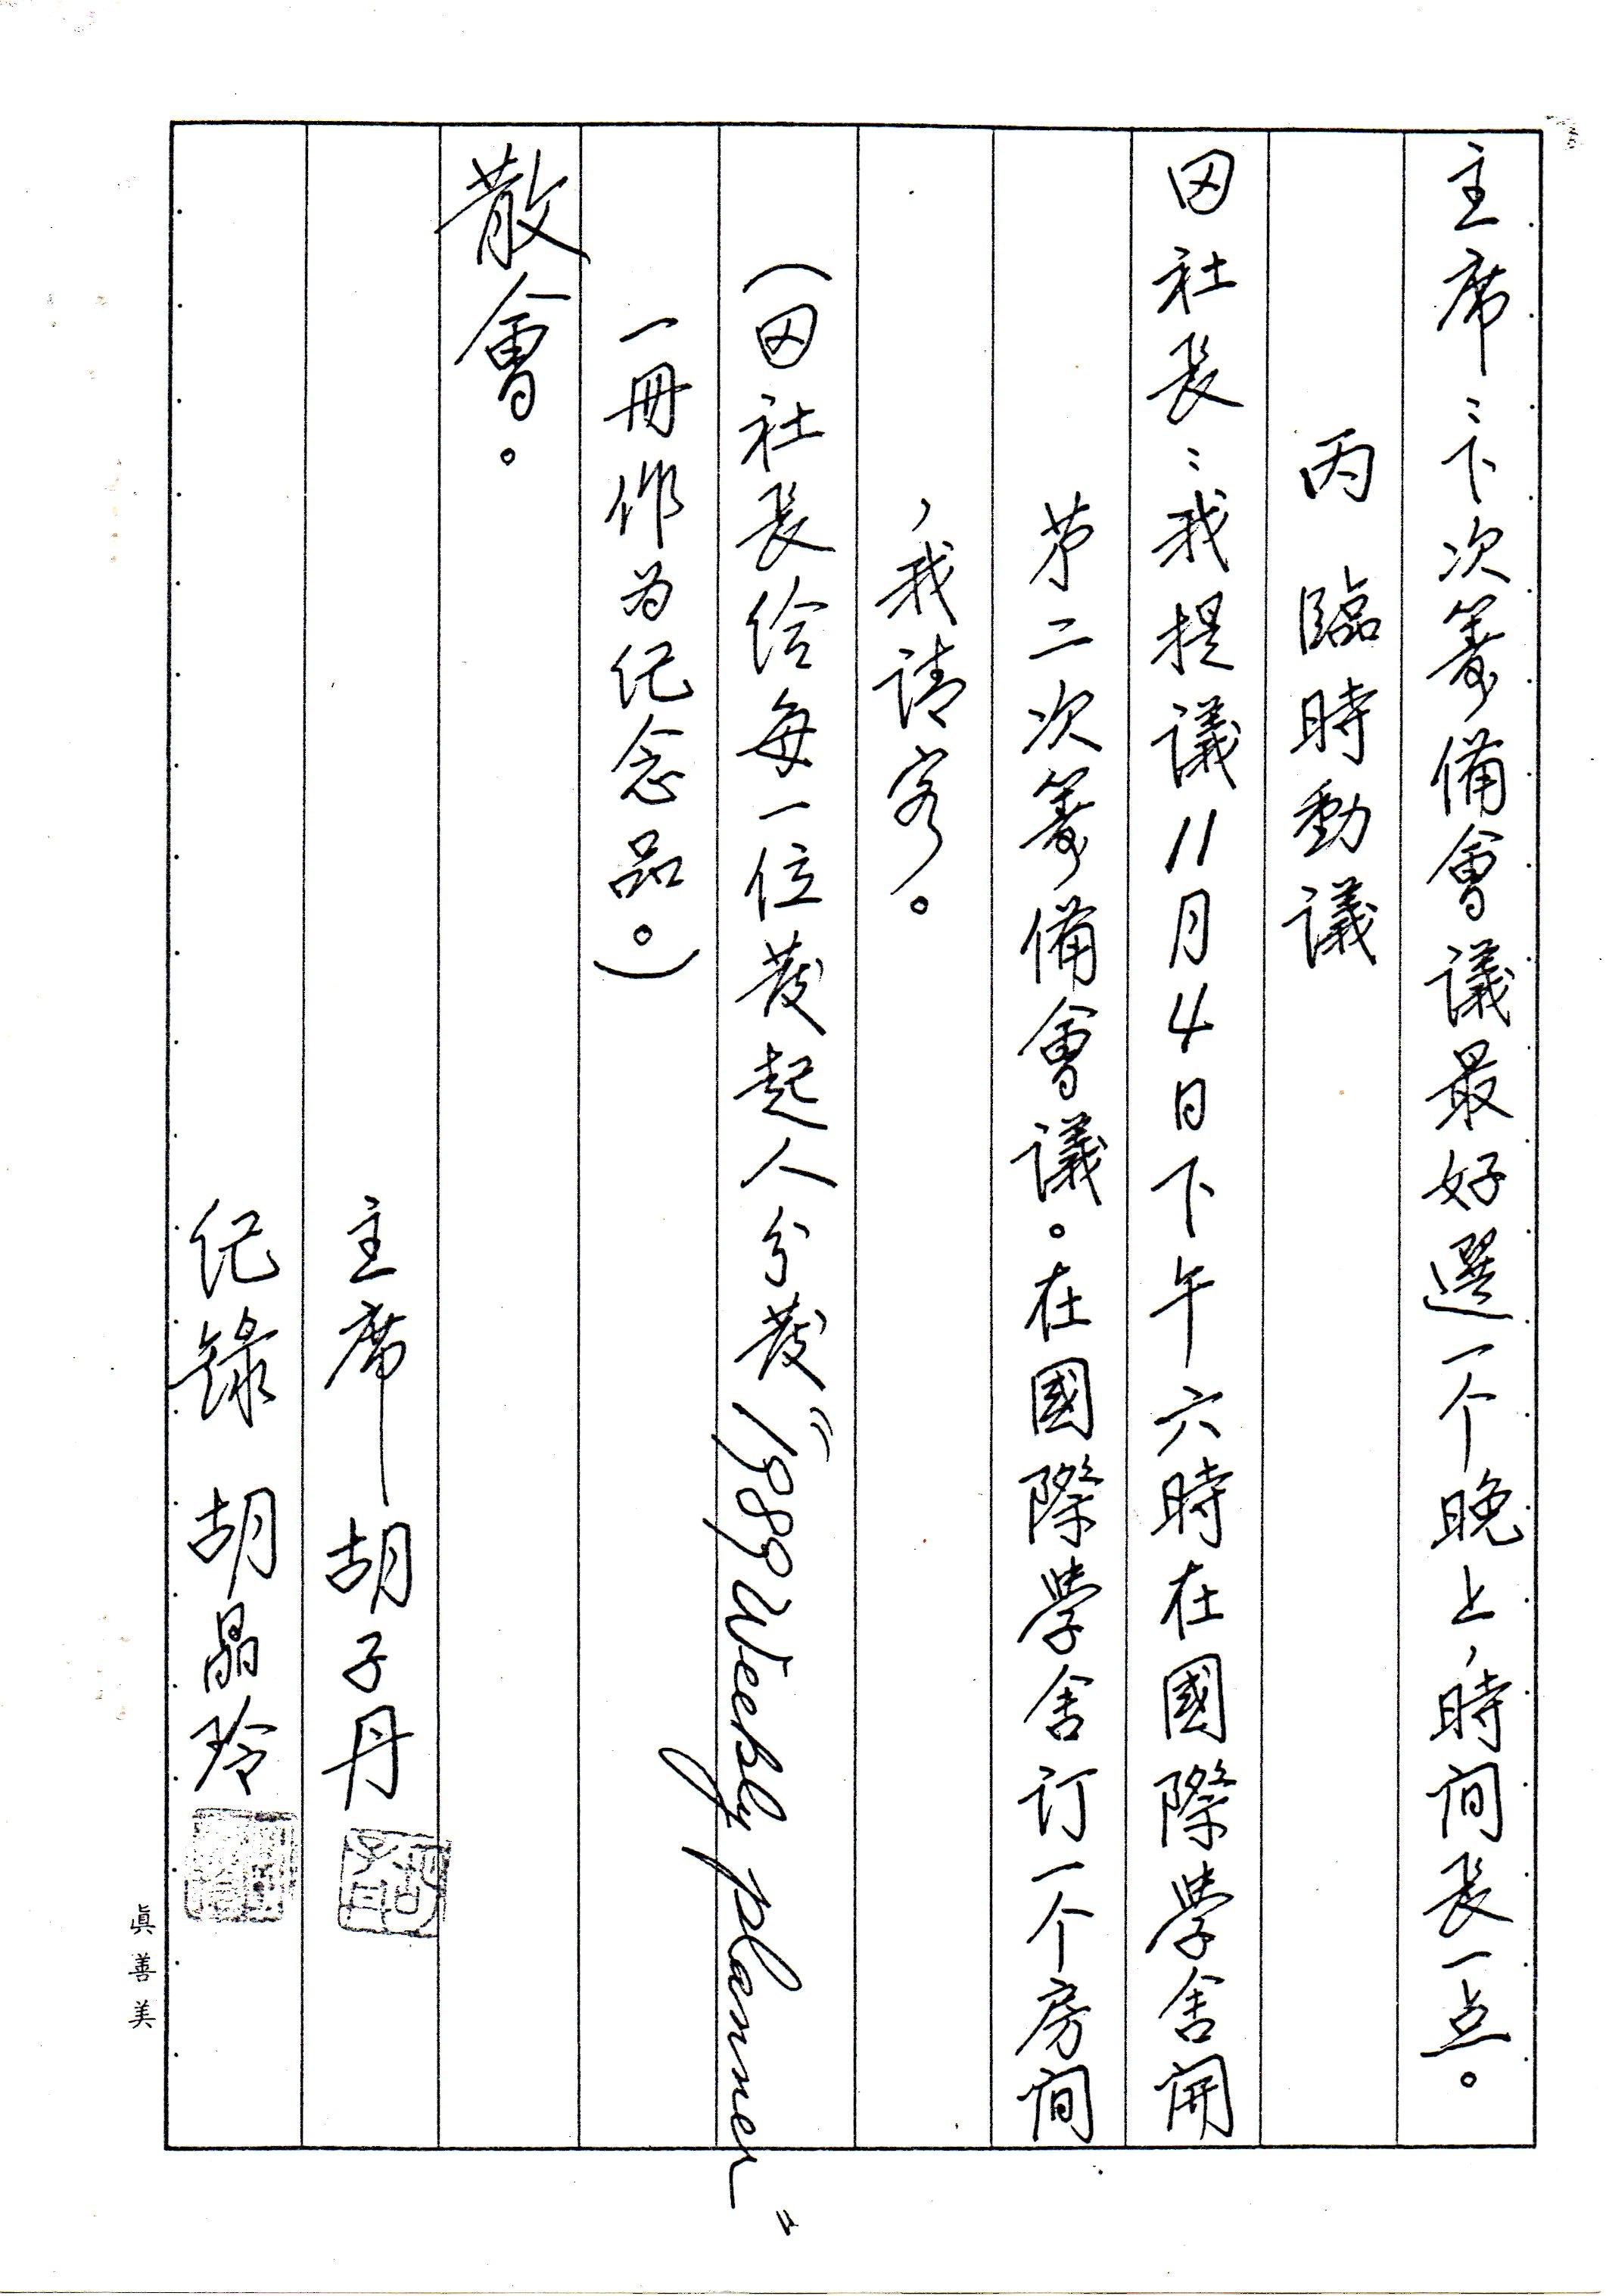 主席：下次籌備會議最好選一个晚上，時间長一点。
丙 臨時動議
田社長：我提議11月4日下午六時在國際學舍開
第二次籌備會議。在國際學舍订一个房间
，我请客。
（田社長给每一位發起人分發“1989 Weekly planner”
一冊作为纪念品。）
散會。
主席 胡子丹
纪錄 胡晶玲
眞善美